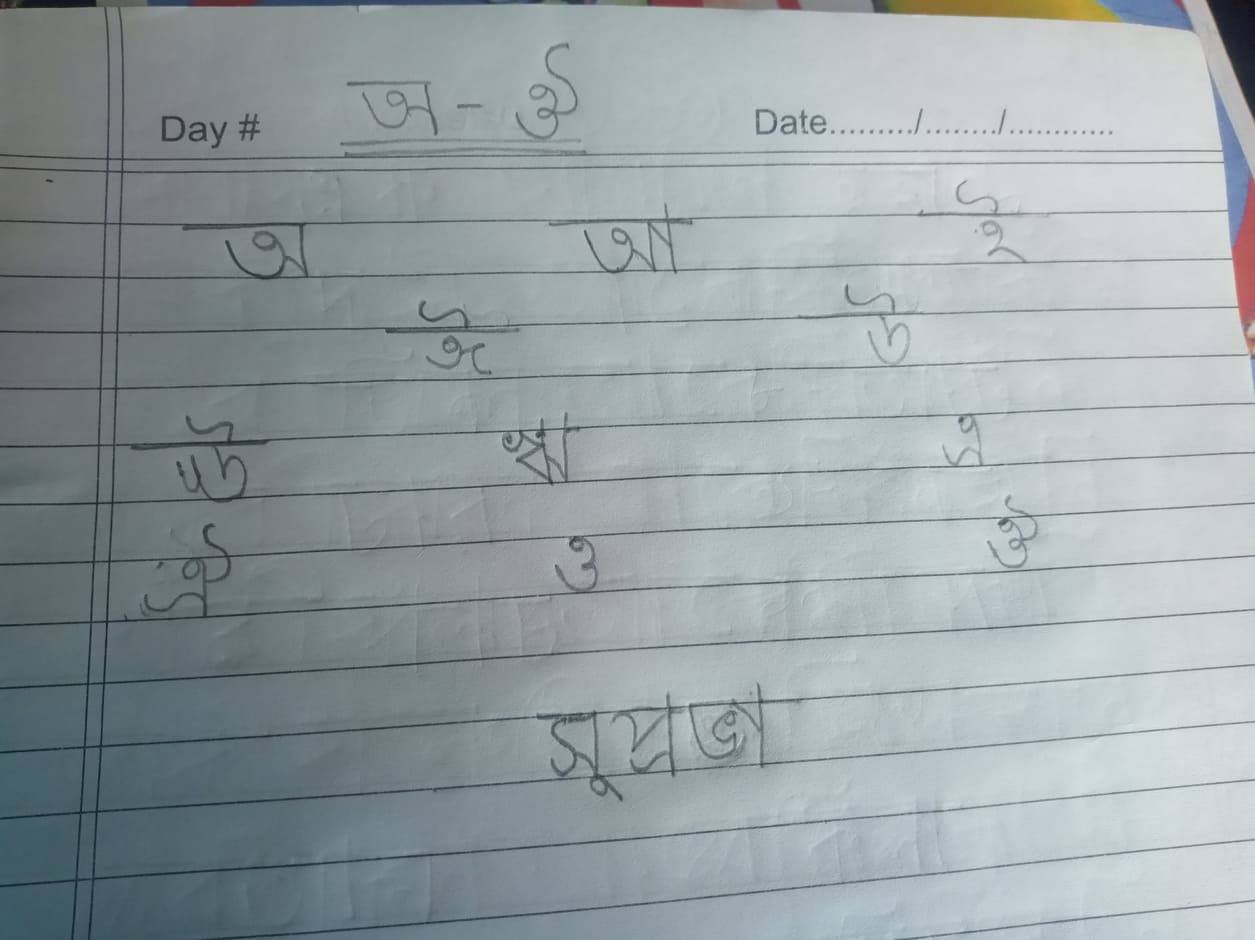 Day # অ - ঔ Date........./......../............
অ আ ই
ঈ উ
ঊ ঋ এ
ঐ ও ঔ
সুপ্রভা